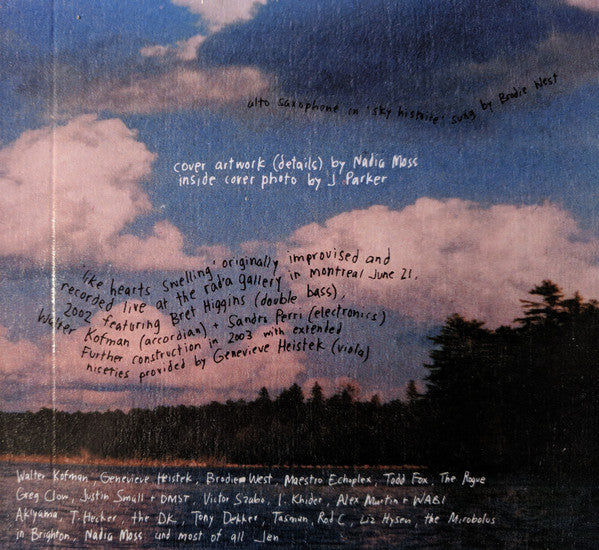 alto saxophone in 'sky histoire' sung by Brodie West
cover artwork (details) by Nadia Moss
inside cover photo by J Parker
'like hearts swelling' originally improvised and
recorded live at the rada gallery in montreal June 21,
2002 featuring Bret Higgins (double bass),
Walter Kofman (accordian) + Sandro Perri (electronics)
Further construction in 2003 with extended
niceties provided by Genevieve Heistek (viola)
Walter Kofman, Genevieve Heistek, Brodie West, Maestro Echoplex, Todd Fox, The Rogue
Greg Clow, Justin Small + DMST, Victor Szabo, I. Khider, Alex Martin + WABI
Akiyama, T. Hecker, the DK, Tony Dekker, Tasman, Rod C, Liz Hysen, the Mirobolus
in Brighton, Nadia Moss und most of all Jen